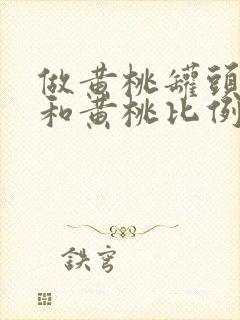 做黃桃罐頭
和黃桃比例
鉄穹